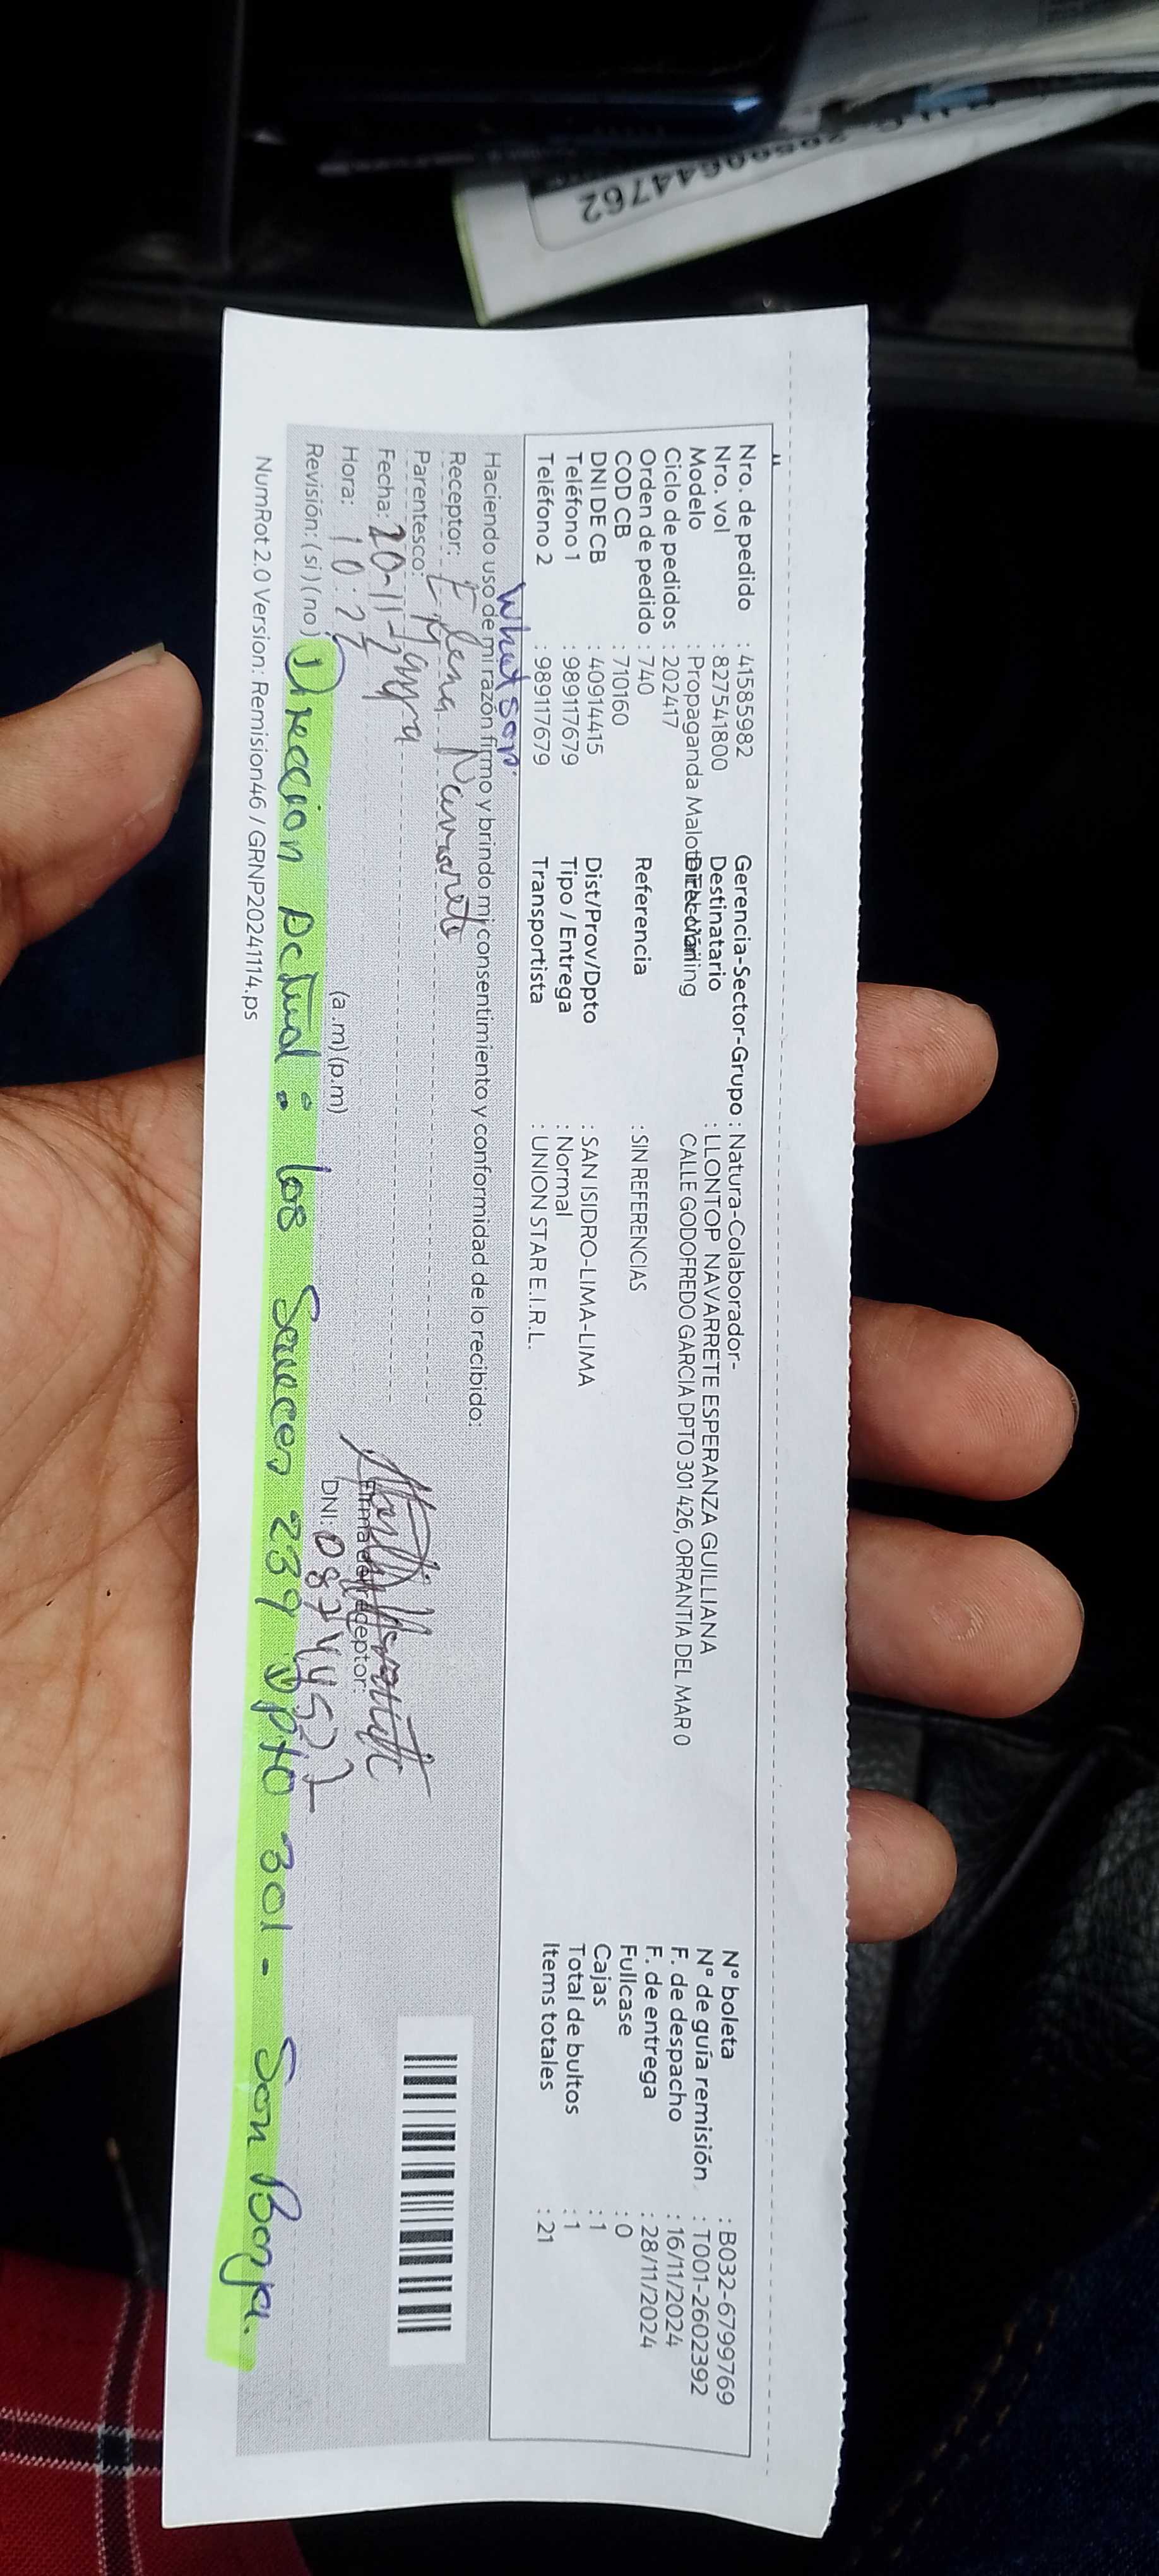 Nro. de pedido : 41585982 Gerencia-Sector-Grupo : Natura-Colaborador- N° boleta : B032-6799769
Nro. vol : 827541800 Destinatario : LLONTOP NAVARRETE ESPERANZA GUILLIANA N° de guía remisión : T001-2602392
Modelo : Propaganda Malote Dirección CALLE GODOFREDO GARCIA DPTO 301 426, ORRANTIA DEL MAR 0 F. de despacho : 16/11/2024
Ciclo de pedidos : 202417 F. de entrega : 28/11/2024
Orden de pedido : 740 Referencia : SIN REFERENCIAS Fullcase : 0
COD CB : 710160 Cajas : 1
DNI DE CB : 40914415 Dist/Prov/Dpto : SAN ISIDRO-LIMA-LIMA Total de bultos : 1
Teléfono 1 : 989117679 Tipo / Entrega : Normal Items totales : 21
Teléfono 2 : 989117679 Transportista : UNION STAR E.I.R.L.
What sap.
Haciendo uso de mi razón firmo y brindo mi consentimiento y conformidad de lo recibido:
Receptor: Elena Navarrete
Parentesco:
Fecha: 20-11-
Hora: 10:25 (a.m) (p.m) DNI: 08744527
Revisión: (si) (no) Direccion Actual: los Sauces 239 Dpto 301 - San Borja.
NumRot 2.0 Version: Remision46 / GRNP20241114.ps